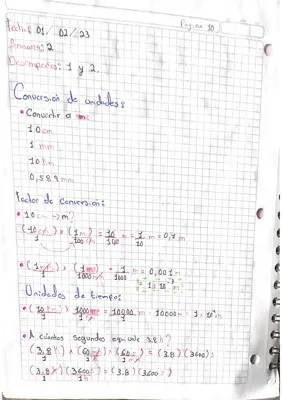 Pagina 10
Fecha: 01/ 02/ 23
2
Desempeños: 1 y 2.
Conversión de unidades:
• Convertir a m:
10 cm
1 mm
10 Km
0,589 mm
Factor de conversion:
• 10 cm → m?
(10 cm/1) x (1m/100 cm) = 10/100 m = 1/10 m = 0,1 m
• (1 mm/1) x (1 m/1000 mm) = 1/1000 m = 0,001 m
= 1 x 10⁻³ m
Unidades de tiempo:
• (10 Km/1) x 1000m/1 Km = 10000/1 m = 10000 m = 1 x 10⁴ m
• A cuántos segundos equivale 3.8 h?
(3.8 h/1) x (60 /1 h) x (60 /1 ) = (3.8) (3600)
(3.8 h/1) (3600 s/1 h) = (3.8) (3600 s)